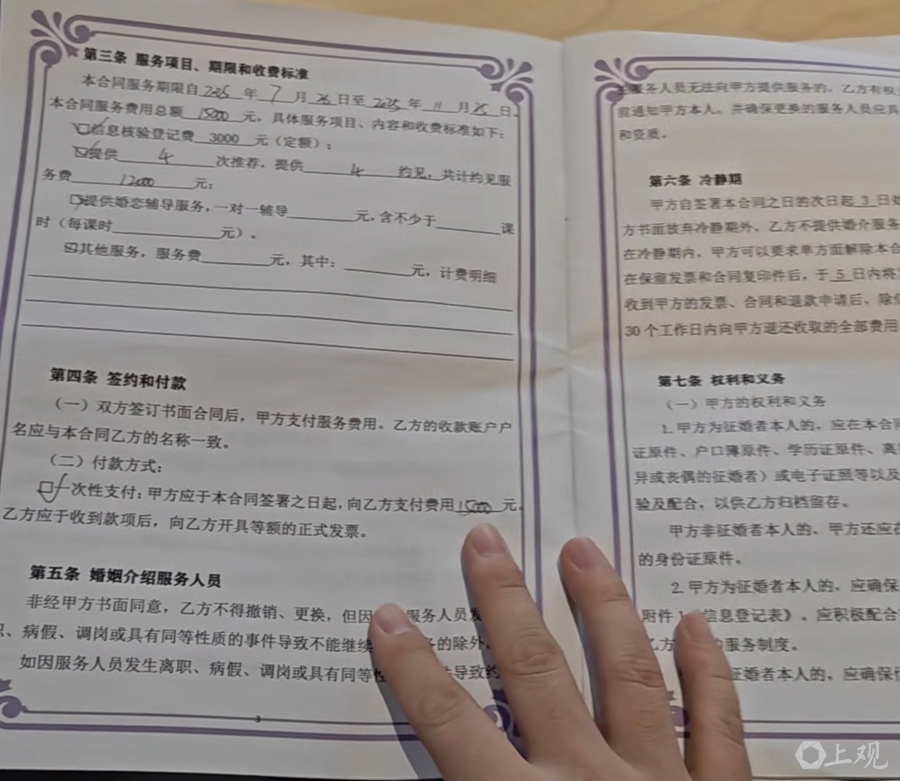 第三条 服务项目、期限和收费标准
本合同服务期限自2025年7月26日至2025年11月25日。
本合同服务费用总额15000元，具体服务项目、内容和收费标准如下：
信息核验登记费3000元（定额）；
提供4次推荐，提供4约见，共计约见服
务费12000元；
提供婚恋辅导服务，一对一辅导 元，含不少于 课
时（每课时 元）。
其他服务，服务费 元，其中： 元，计费明细
第四条 签约和付款
（一）双方签订书面合同后，甲方支付服务费用。乙方的收款账户户
名应与本合同乙方的名称一致。
（二）付款方式：
一次性支付：甲方应于本合同签署之日起，向乙方支付费用15000元。
乙方应于收到款项后，向乙方开具等额的正式发票。
第五条 婚姻介绍服务人员
非经甲方书面同意，乙方不得撤销、更换，但因 服务人员发
职、病假、调岗或具有同等性质的事件导致不能继续 务的除外。
如因服务人员发生离职、病假、调岗或具有同等性 件导致约
3
服务人员无法向甲方提供服务的，乙方有权
前通知甲方本人，并确保更换的服务人员应具
和资质。
第六条 冷静期
甲方自签署本合同之日的次日起3日
方书面放弃冷静期外，乙方不提供婚介服务
在冷静期内，甲方可以要求单方面解除本合
在保留发票和合同复印件后，于5日内将
收到甲方的发票、合同和退款申请后，除
30个工作日内向甲方退还收取的全部费用
第七条 权利和义务
（一）甲方的权利和义务
1.甲方为征婚者本人的，应在本合同
证原件、户口簿原件、学历证原件、离
异或丧偶的征婚者）或电子证照等以及
验及配合，以供乙方归档留存。
甲方非征婚者本人的，甲方还应在
的身份证原件。
2.甲方为征婚者本人的，应确保
附件1 信息登记表》。应积极配合
乙方 的服务制度。
征婚者本人的，应确保
上观